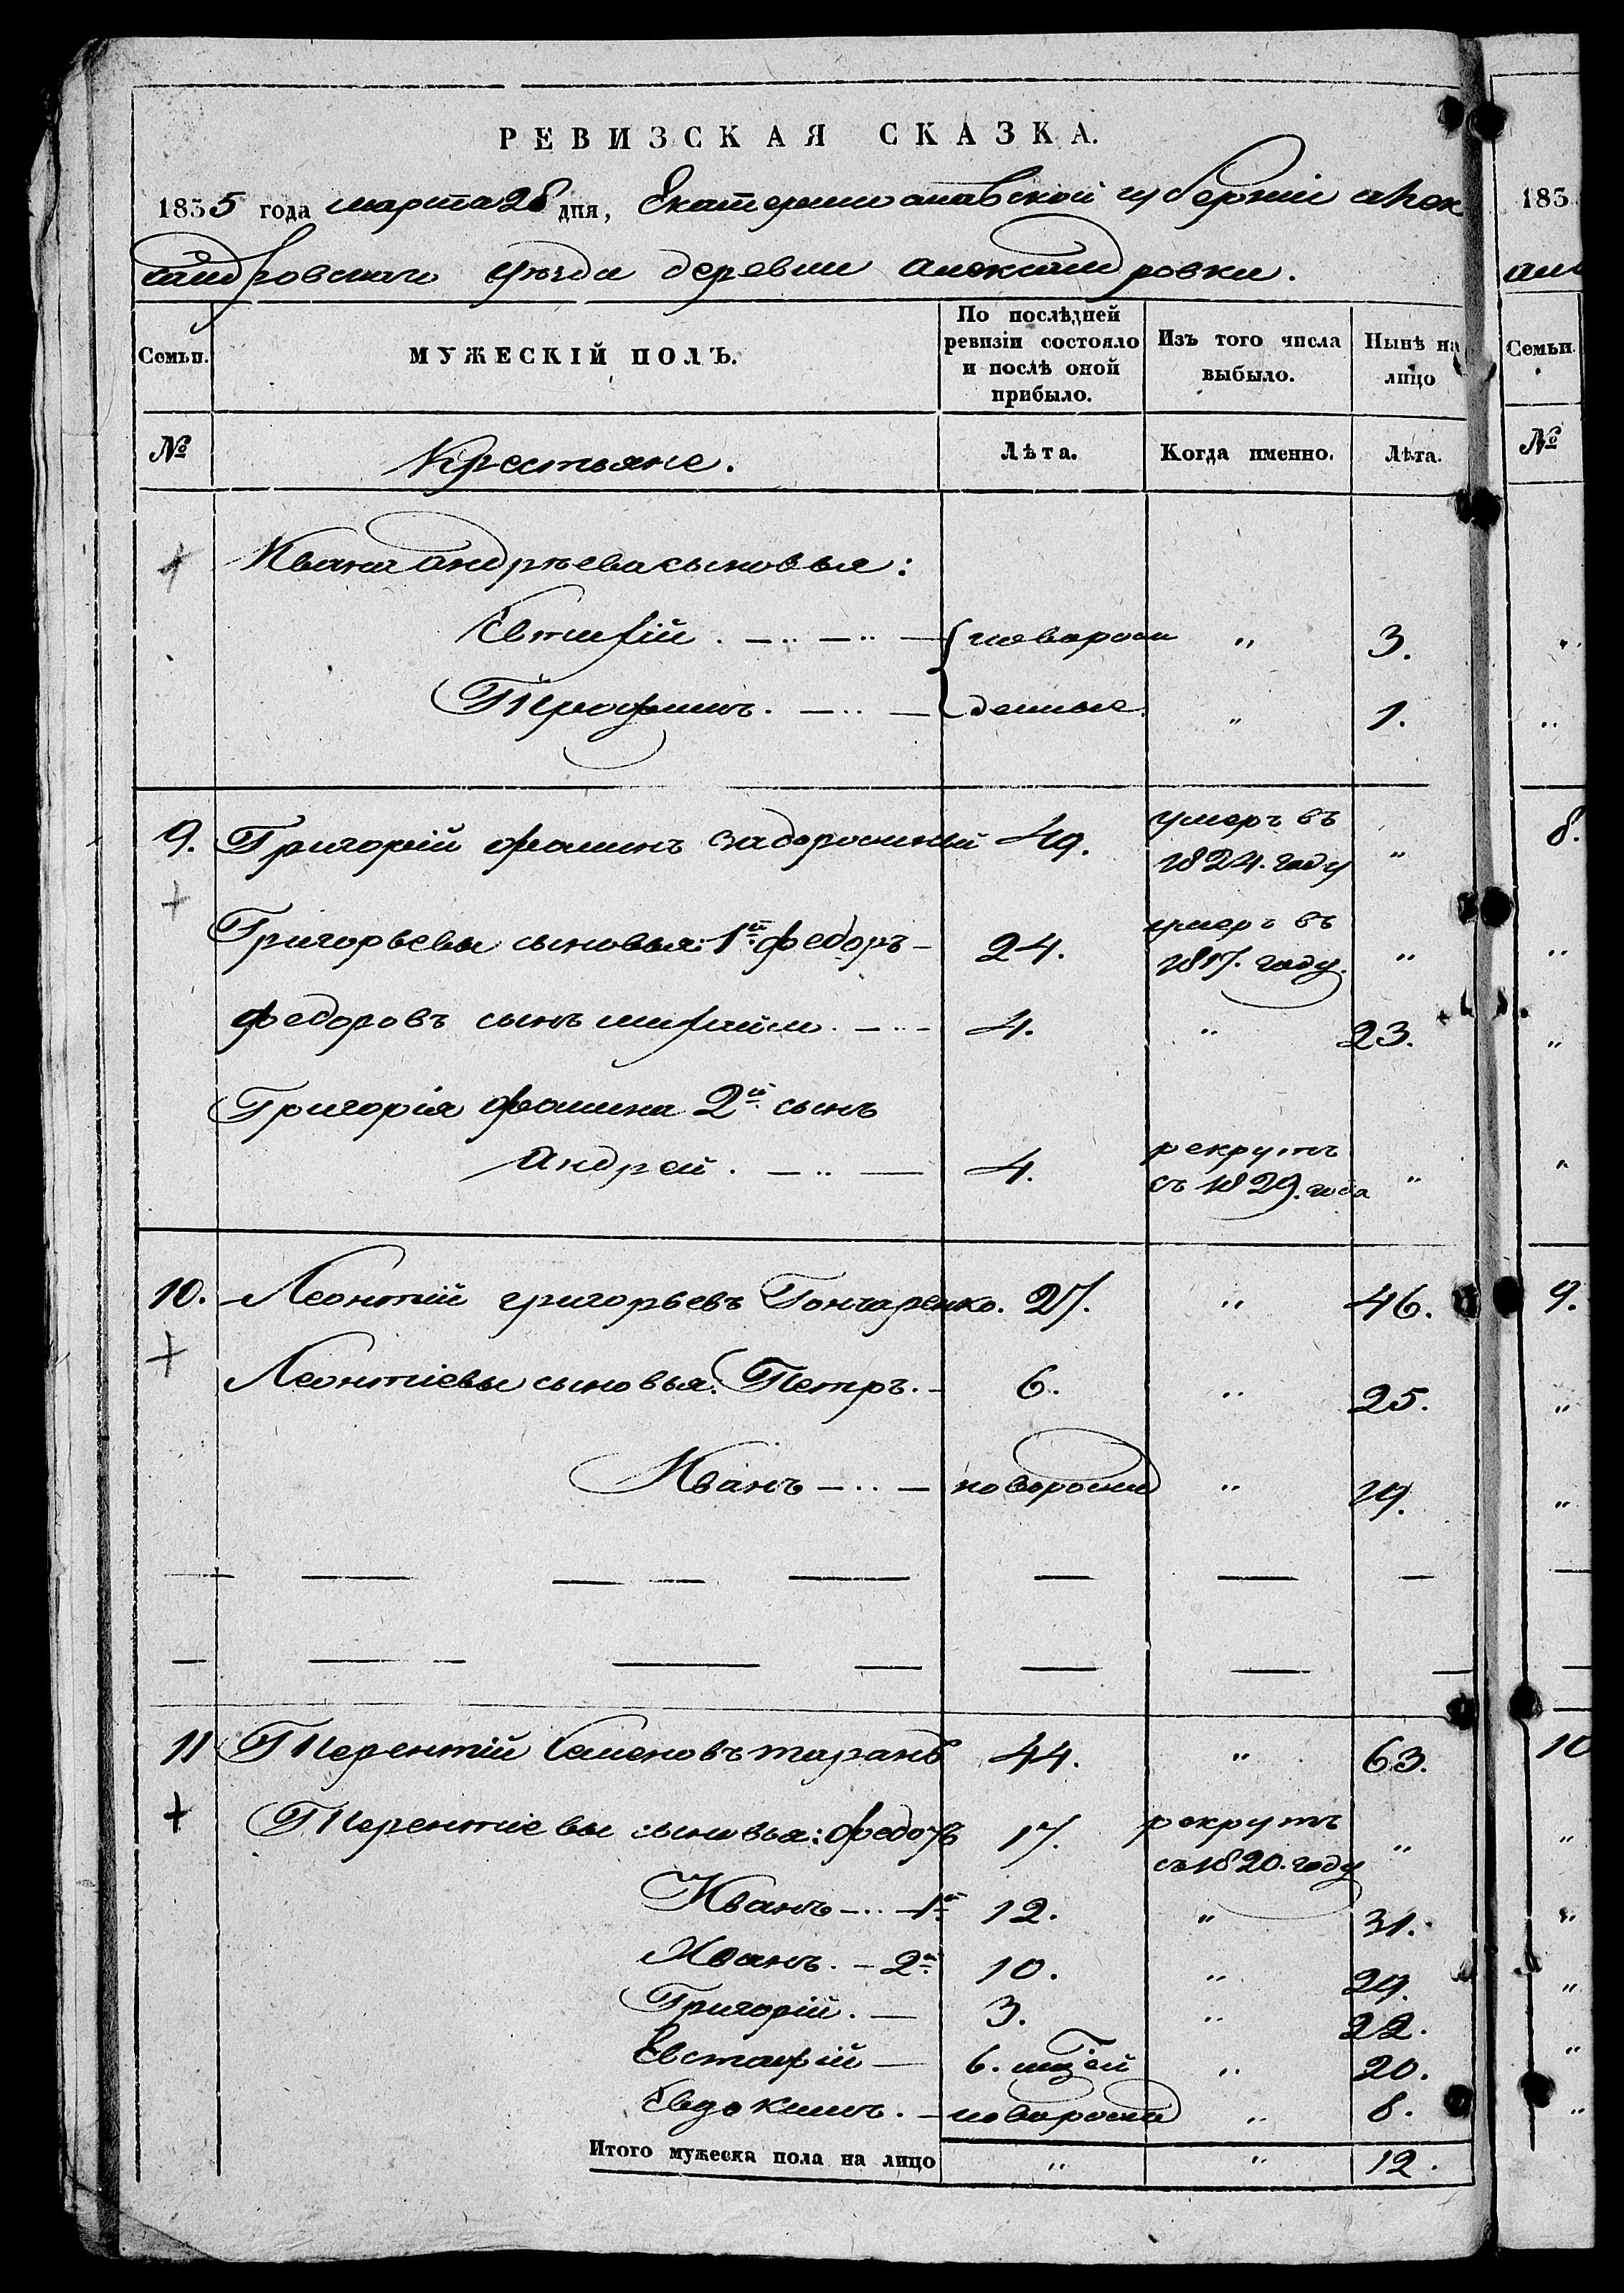 РЕВИЗСКАЯ СКАЗКА.
1835 года марта 28 дня, Екатеринославской губерніи алек
сандровскаго уѣзда деревни александровки.
Семьи. МУЖЕСКІЙ ПОЛЪ. По послѣдней ревизіи состояло и послѣ оной прибыло. Изъ того числа выбыло. Нынѣ на лицо
№ Крестьяне. Лѣта. Когда именно. Лѣта.
Ивана андрѣева сыновья:
Евтифій . { новорож „ 3.
Трофимъ. денные. „ 1.
9. Григорій фоминъ задорожный 49. умеръ въ 1824. году „
Григорьевы сыновья: 1й федоръ 24. умеръ въ 1817. году. „
федоровъ сынъ михайло. 4. „ 23.
Григорія фомина 2й сынъ
андрей. 4. рекрутъ съ 1829. года „
10. Леонтій григорьевъ Гончаренко. 27. „ 46.
Леонтіевы сыновья. Петръ. 6. „ 25.
Иванъ новорожд „ 14.
11 Терентій Семеновъ таранъ 44. „ 63.
Терентіевы сыновья: федоръ 17. рекрутъ съ 1820. году „
Иванъ 1й 12. „ 31.
Иванъ. 2й 10. „ 29.
Григорій. 3. „ 22.
Евстафій 6. „ 20.
Евдокимъ. новорожд „ 8.
Итого мужеска пола на лицо „ „ 12.
183
Семьи.
№
8.
9.
10